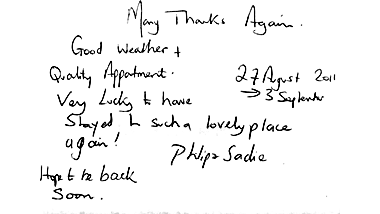 Many Thanks Again.
Good weather +
Quality Appartment.
27 August 2011
→ 3 September
Very Lucky to have
Stayed in such a lovely place
again!
Philip & Sadie
Hope to be back
Soon.